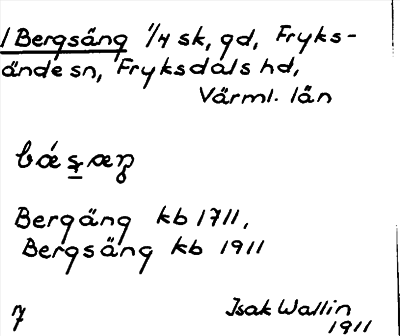 1 Bergsäng 1/4 sk, gd, Fryks-
ände sn, Fryksdals hd,
Värml. län
bǽs̠æŋ
Bergäng kb 1711,
Bergsäng kb 1911
7 Isak Wallin
1911